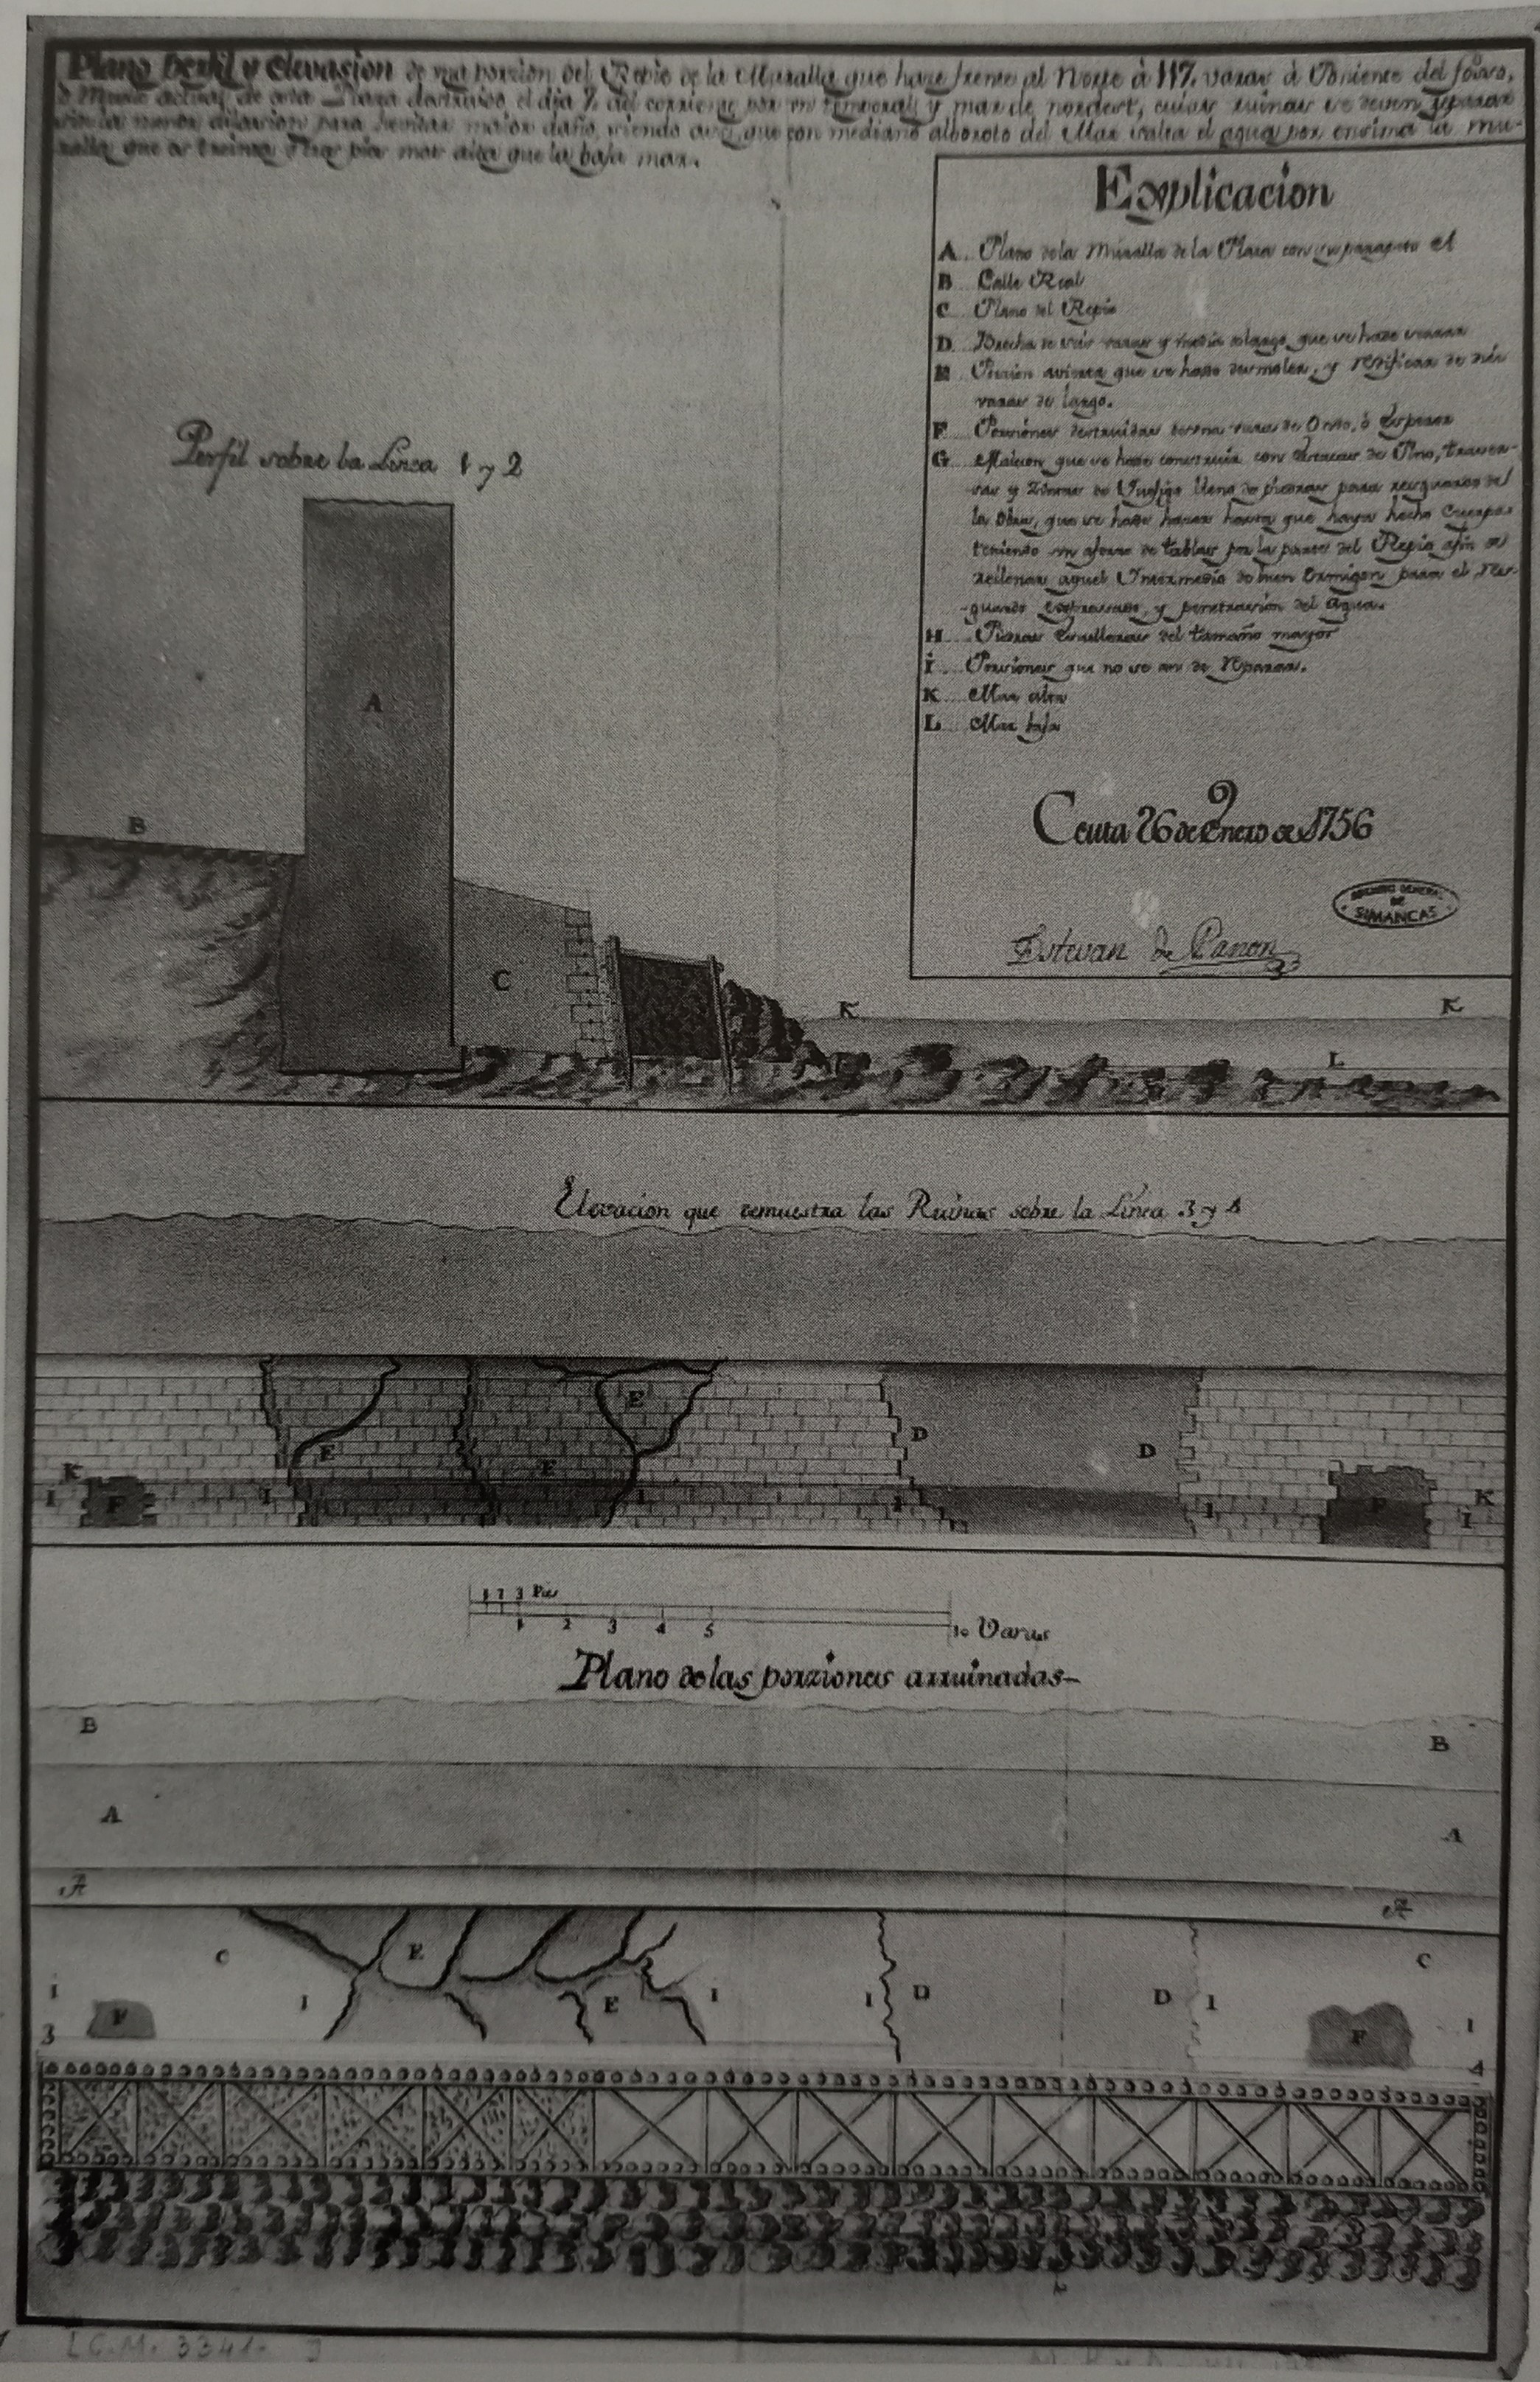 Plano Perfil y elevasion de una porzion del Repie de la Muralla que haze frente al Norte à 117. varas à Poniente del
ò Muelle actual de esta Plaza destruido el dia 7. del corriente por un temporal y mar de nordest, cuias ruinas se deven reparar
sin la menor dilasion para hevitar maior daño, siendo que con mediano alboroto del Mar salta el agua por ensima la mu-
ralla que es treinta pies mas alta que la baja mar.
Explicacion
A. Plano de la Muralla de la Plaza con su parapeto el
B Calle Real
C Plano del Repie
D Brecha de seis varas y media de largo, que se hade
E Porsion que se hade demoler, y redificar de diéz
varas de largo.
F Porsiones destruidas
G que se hade construir con Estacas de Pino, traver-
sas y llena de piedras para resguardo del
la Obra, que se hade hazer hasta que haya hecho cuerpo
teniendo un aforro de tablas por la parte del Repie afin de
rellenar aquel Intermedio de buen Ormigon para el res-
guardo y penetrasion del Agua.
H Piedras del tamaño mayor
I Porsiones que no se an de Reparar.
K Mar alta
L Mar baja
Ceuta 26 de Enero de 1756
Estevan de Panon
ARCHIVO GENERAL
DE
SIMANCAS
Perfil sobre la Linea 1 y 2
A
B
C
K K
L
Elevacion que demuestra las Ruinas sobre la Linea 3 y 4
E
E D D
K E
I F I I I I F K
I
1 2 3 Pies
1 2 3 4 5 10 Varas
Plano de las porziones arruinadas
B B
A A
A A
C E C
I I E I I D D I I
F F
3 4
L C.M. 3341- J